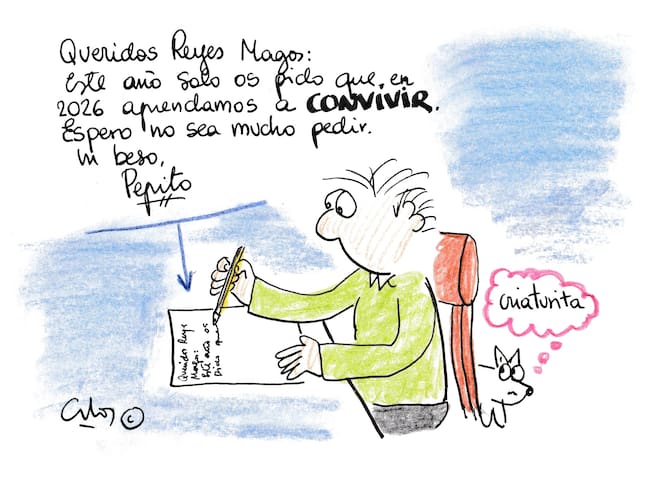 Queridos Reyes Magos:
Este año solo os pido que, en
2026 aprendamos a CONVIVIR.
Espero no sea mucho pedir.
Un beso,
Pepito
Queridos Reyes
Magos:
Este año os
criaturita
©